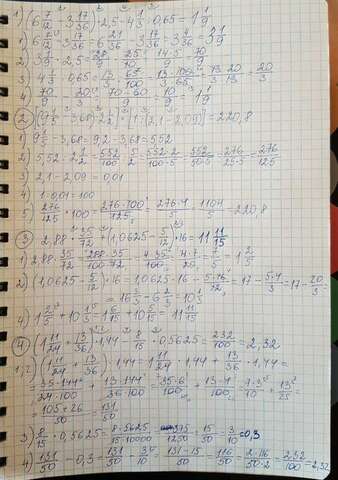 1) (6 7/12 - 3 17/36) · 2,5 - 4 1/3 : 0,65 = 1 1/9
1) 6 7/12 - 3 17/36 = 6 21/36 - 3 17/36 = 3 4/36 = 3 1/9
2) 3 1/9 · 2,5 = 28/9 · 25/10 = 14·5/9 = 70/9
3) 4 1/3 : 0,65 = 13/3 : 65/100 = 13·100/3·65 = 20/3
4) 70/9 - 20/3 = 70-60/9 = 10/9 = 1 1/9
2) [(9 1/5 - 3,68) : 2/5] · [1 : (2,1 - 2,09)] = 220,8
1) 9 1/5 - 3,68 = 9,2 - 3,68 = 5,52
3) 2,1 - 2,09 = 0,01
4) 1 : 0,01 = 100
5) 276/125 · 100 = 276·100/125 = 276·4/5 = 1104/5 = 220,8
3) 2,88 · 35/72 + (1,0625 - 5/12) · 16 = 11 11/15
1) 2,88 · 35/72 = 288/100 · 35/72 = 4·35/100 = 7/5 = 1 2/5
2) (1,0625 - 5/12) · 16 = 1,0625 · 16 - 5·16/12 = 17 - 5·4/3 = 17 - 20/3 =
= 16 3/3 - 6 2/3 = 10 1/3
4) 1 2/5 + 10 1/3 = 1 6/15 + 10 5/15 = 11 11/15
4) (1 11/24 + 13/36) · 1,44 - 8/15 · 0,5625 = 232/100 = 2,32
1,2) (1 11/24 + 13/36) · 1,44 = 1 11/24 · 1,44 + 13/36 · 1,44 =
= 35·144/24·100 + 13·144/36·100 = 35·6/100 + 13·4/100
= 105+26/50 = 131/50
3) 8/15 · 0,5625 = 8·5625/15·10000 = 3/10 = 0,3
4) 131/50 - 0,3 = 131/50 - 3/10 = 131-15/50 = 116/50 = 2·116/50·2 = 232/100 = 2,32